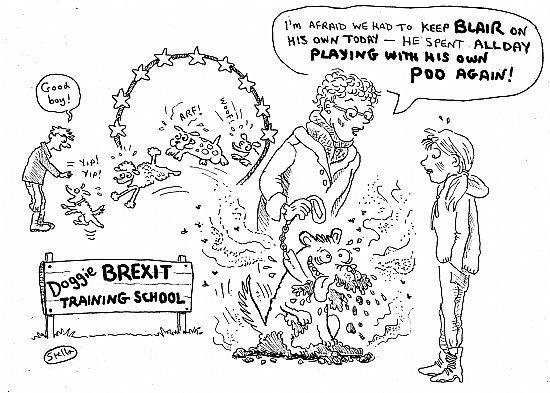 I'M AFRAID WE HAD TO KEEP BLAIR ON
HIS OWN TODAY — HE SPENT ALL DAY
PLAYING WITH HIS OWN
POO AGAIN!
Good
boy!
ARF!
WOOF!
YIP!
YIP!
Doggie BREXIT
TRAINING SCHOOL
Stella